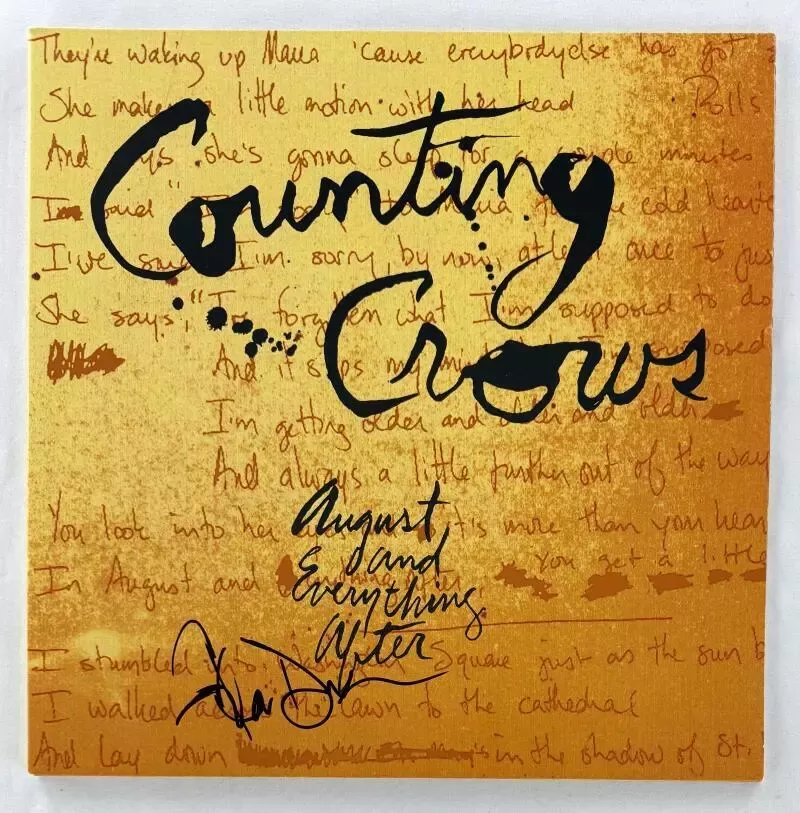 They're waking up Maria 'cause everybodyelse has got
She makes a little motion with her head Rolls
And says she's gonna sleep for a couple minutes
I said "I'm to Maria cold
Counting
I've said I'm sorry by now, at least once to jus
She says, "I've forgotten what I'm supposed to do
Crows
And it slips my mind I'm supposed
I'm getting older and older and older
And always a little further out of the way
You look into her it's more than your hear
August
and
Everything
After
In August and after, You get a little
I stumbled into Washington Square just as the sun b
I walked across the lawn to the cathedral
And lay down in the shadow of St.